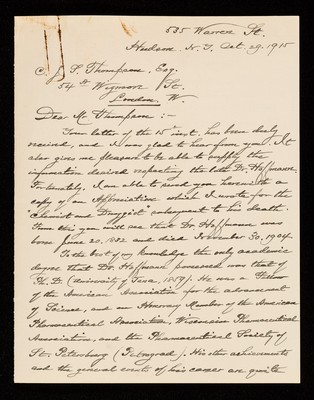 535 Warren St.
Hudson N.Y. Oct. 29, 1915
C. J. S. Thompson, Esq.
54 A Wigmore St.
London W.
Dear Mr Thompson :-
Your letter of the 15 inst. has been duly
received, and I was glad to hear from you. It
also gives me pleasure to be able to supply the
information desired respecting the late Dr. Hoffmann.
Fortunately, I am able to send you herewith a
copy of an Appreciation which I wrote for the
Chemist and Druggist subsequent to his death.
From this you will see that Dr. Hoffmann was
born June 20, 1832 and died November 30, 1904.
To the best of my knowledge the only academic
degree that Dr. Hoffmann possessed was that of
Ph. D. (University of Jena, 1859). He was a
of the American Association for the advancement
of Science, and an Honorary Member of the American
Pharmaceutical Association, Wisconsin Pharmaceutical
Association, and the Pharmaceutical Society of
St. Petersburg (Petrograd). His other achievements
and the general events of his career are quite